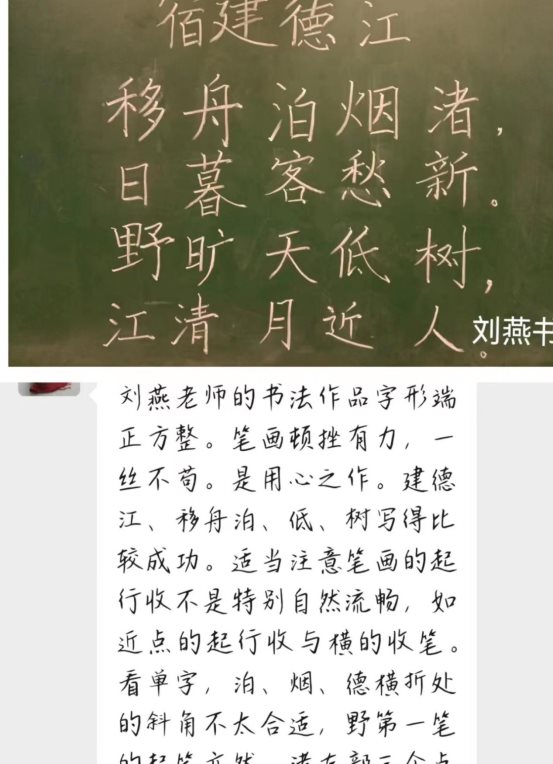 宿建德江
移舟泊烟渚,
日暮客愁新。
野旷天低树,
江清月近人。
刘燕书
刘燕老师的书法作品字形端
正方整。笔画顿挫有力,一
丝不苟。是用心之作。建德
江、移舟泊、低、树写得比
较成功。适当注意笔画的起
行收不是特别自然流畅,如
近点的起行收与横的收笔。
看单字,泊、烟、德横折处
的斜角不太合适,野第一笔
的起笔亦然。渚左部三个点